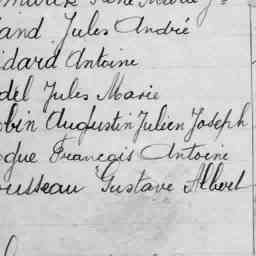 and Jules André
idard Antoine
del Jules Marie
obin Augustin Julien Joseph
ogue François Antoine
ousseau Gustave Albert